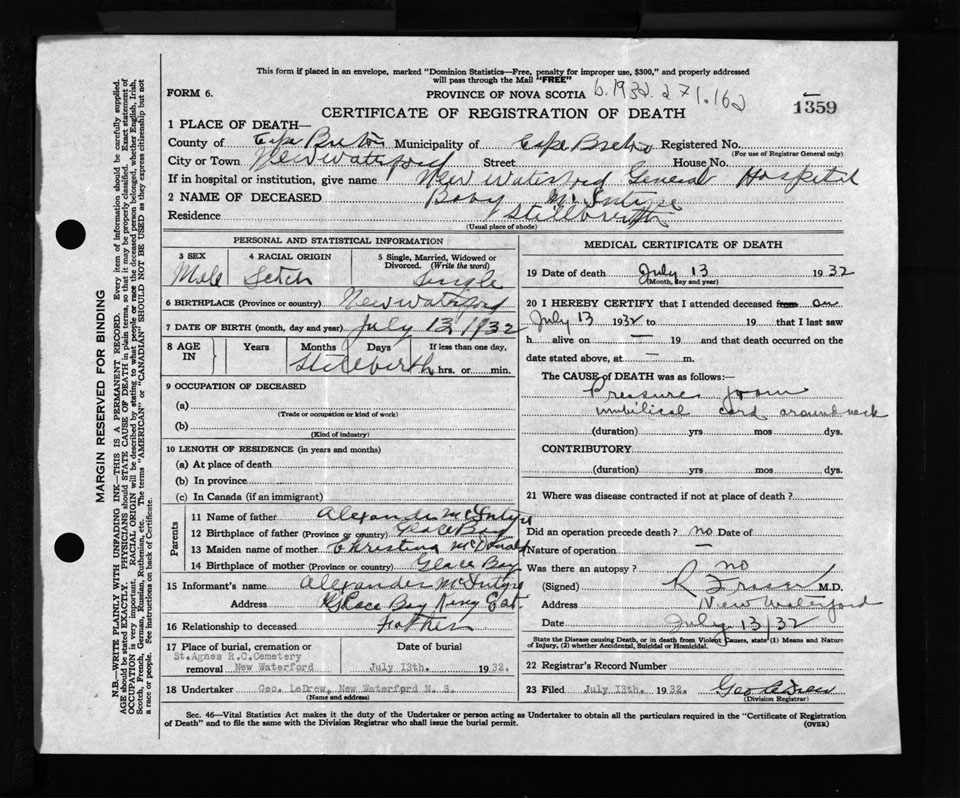 This form if placed in an envelope, marked "Dominion Statistics—Free, penalty for improper use, $300," and properly addressed
will pass through the Mail "FREE"
FORM 6. PROVINCE OF NOVA SCOTIA b.1932.271.162
CERTIFICATE OF REGISTRATION OF DEATH 1359
1 PLACE OF DEATH—
County of Cape Breton Municipality of Cape Breton Registered No.
(For use of Registrar General only)
City or Town New Waterford Street House No.
If in hospital or institution, give name New Waterford General Hospital
2 NAME OF DECEASED Baby McIntyre
Residence Stillbirth
(Usual place of abode)
PERSONAL AND STATISTICAL INFORMATION
3 SEX 4 RACIAL ORIGIN 5 Single, Married, Widowed or Divorced. (Write the word)
Male Scotch Single
6 BIRTHPLACE (Province or country) New Waterford
7 DATE OF BIRTH (month, day and year) July 13, 1932
8 AGE IN Years Months Days If less than one day,
Stillbirth hrs. or min.
9 OCCUPATION OF DECEASED
(a)
(Trade or occupation or kind of work)
(b)
(Kind of industry)
10 LENGTH OF RESIDENCE (in years and months)
(a) At place of death
(b) In province
(c) In Canada (if an immigrant)
Parents
11 Name of father Alexander McIntyre
12 Birthplace of father (Province or country) Glace Bay
13 Maiden name of mother Christina McDonald
14 Birthplace of mother (Province or country) Glace Bay
15 Informant's name Alexander McIntyre
Address Glace Bay
16 Relationship to deceased Father
17 Place of burial, cremation or removal Date of burial
St.Agnes R.C.Cemetery
New Waterford July 13th. 1932.
18 Undertaker Geo. LeDrew, New Waterford N. S.
(Name and address)
MEDICAL CERTIFICATE OF DEATH
19 Date of death July 13 1932
(Month, day and year)
20 I HEREBY CERTIFY that I attended deceased from on
July 13 1932 to 19 that I last saw
h alive on — 19 and that death occurred on the
date stated above, at — m.
The CAUSE of DEATH was as follows:—
Pressure from
umbilical cord around neck
(duration) yrs mos dys.
CONTRIBUTORY
(duration) yrs mos dys.
21 Where was disease contracted if not at place of death?
Did an operation precede death? no Date of
Nature of operation —
Was there an autopsy? no
(Signed) R Fraser M.D.
Address New Waterford
Date July 13/32
State the Disease causing Death, or in death from Violent Causes, state (1) Means and Nature
of Injury, (2) whether Accidental, Suicidal or Homicidal.
22 Registrar's Record Number
23 Filed July 13th. 1932. Geo LeDrew
(Division Registrar)
Sec. 46—Vital Statistics Act makes it the duty of the Undertaker or person acting as Undertaker to obtain all the particulars required in the "Certificate of Registration
of Death" and to file the same with the Division Registrar who shall issue the burial permit. (OVER)
MARGIN RESERVED FOR BINDING
N.B.—WRITE PLAINLY WITH UNFADING INK—THIS IS A PERMANENT RECORD. Every item of information should be carefully supplied.
AGE should be stated EXACTLY. PHYSICIANS should STATE CAUSE OF DEATH in plain terms, so that it may be properly classified. Exact statement of
OCCUPATION is very important. RACIAL ORIGIN will be described by stating to what people or race the deceased person belonged, whether English, Irish,
Scotch, French, German, Russian, Ruthenian, etc. The terms "AMERICAN" or "CANADIAN" SHOULD NOT BE USED as they express citizenship but not
a race or people. See instructions on back of Certificate.